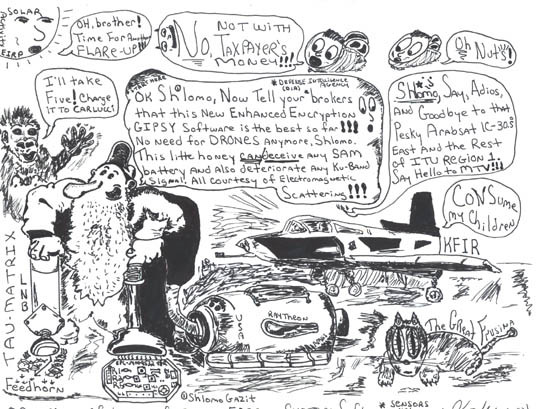 SOLAR
OH, brother!
Time For Another
FLARE-UP!!!
NOT WITH
NO, TAXPAYER'S
MONEY!!!
Oh
Nuts!
I'll take
Five! Charge
it TO CARLUCCI
* DEFENSE INTELLIGENCE
(DIA) AGENCY
OK Shlomo, Now Tell your brokers
that this New Enhanced Encryption
GIPSY Software is the best so far!!!
No need for DRONES anymore, Shlomo.
This little honey can deceive any SAM
battery and also deteriorate any Ku-Band
Signal. All courtesy of Electromagnetic
Scattering!!!
Shlomo, Say, Adios,
And Goodbye to that
Pesky Arabsat 1C-30.5
East and the Rest
of ITU REGION 1.
Say Hello to MTV!!!
CONSume
My Children
KFIR
TAU-MATRIX
LNB
Feedhorn
USA
RAYTHEON
The Great
©Shlomo Gazit
* SENSORS